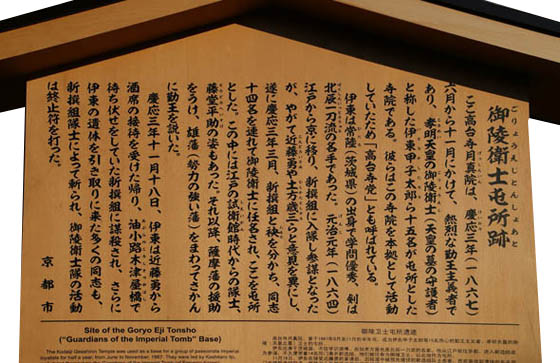 御陵衛士屯所跡
ごりょうえじとんしょあと
ここ高台寺月真院は、慶応三年(一八六七)
六月から十一月にかけて、熱烈な勤王主義者で
あり、孝明天皇の御陵衛士(天皇の墓の守護者)
と称した伊東甲子太郎ら十五名が屯所とした
寺院である。彼らはこの寺院を本拠として活動
していたため「高台寺党」とも呼ばれている。
伊東は常陸(茨城県)の出身で学問優秀、剣は
北辰一刀流の名手であった。元治元年(一八六四)
江戸から京に移り、新撰組に入隊し参謀となった
が、やがて近藤勇や土方歳三らと意見を異にし、
遂に慶応三年三月、新撰組と袂を分かち、同志
十四名を連れて御陵衛士に任名され、ここを屯所
とした。この中には江戸の試衛館時代からの隊士、
藤堂平助の姿もあった。それ以降、薩摩藩の援助
をうけ、雄藩(勢力の強い藩)をまわってさかん
に勤王を説いた。
慶応三年十一月十八日、伊東は近藤勇から
酒席の接待を受けた帰り、油小路木津屋橋で
待ち伏せをしていた新撰組に謀殺され、さらに
伊東の遺体を引き取りに来た多くの同志も、
新撰組隊士によって斬られ、御陵衛士隊の活動
は終止符を打った。
京都市
Site of the Goryo Eji Tonsho
("Guardians of the Imperial Tomb" Base)
The Kodaiji Gesshinin Temple was used as a base for a group of passionate imperial
loyalists for half a year, from June to November, 1867. They were led by Kashitaro Ito,
御陵卫士屯所遗迹